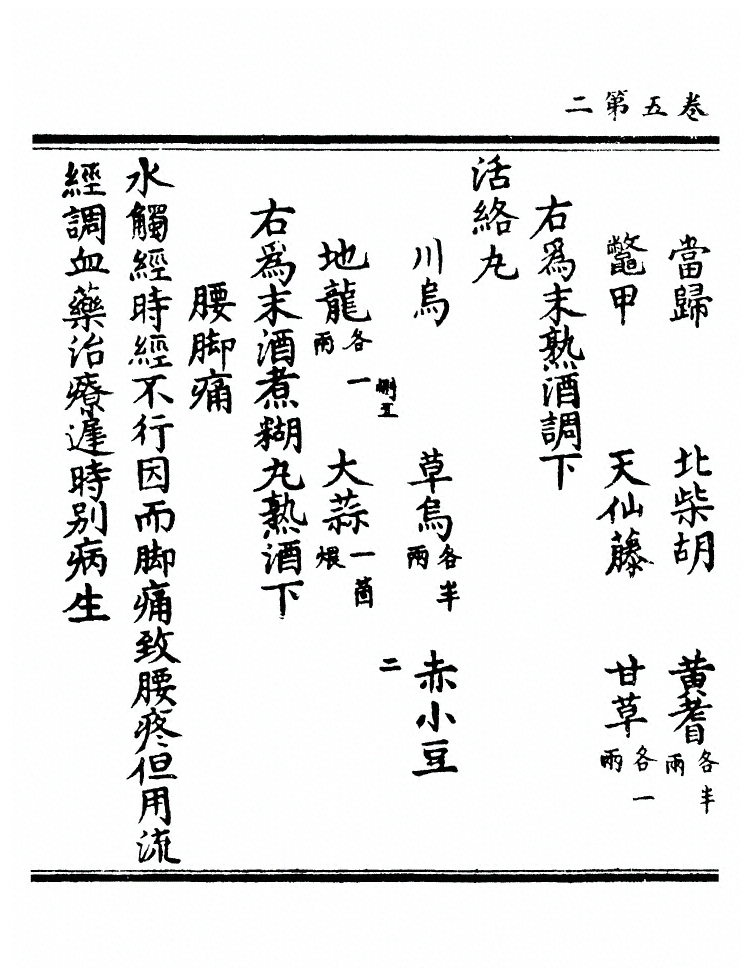 卷五第二
當歸 北柴胡 黃耆各半兩
鼈甲 天仙藤 甘草各一兩
右爲末熟酒調下
活絡丸
川烏 草烏各半兩 赤小豆
二
地龍各一兩 大蒜一箇煨
右爲末酒煮糊丸熟酒下
腰脚痛
水觸經時經不行因而脚痛致腰疼但用流
經調血藥治療遲時别病生